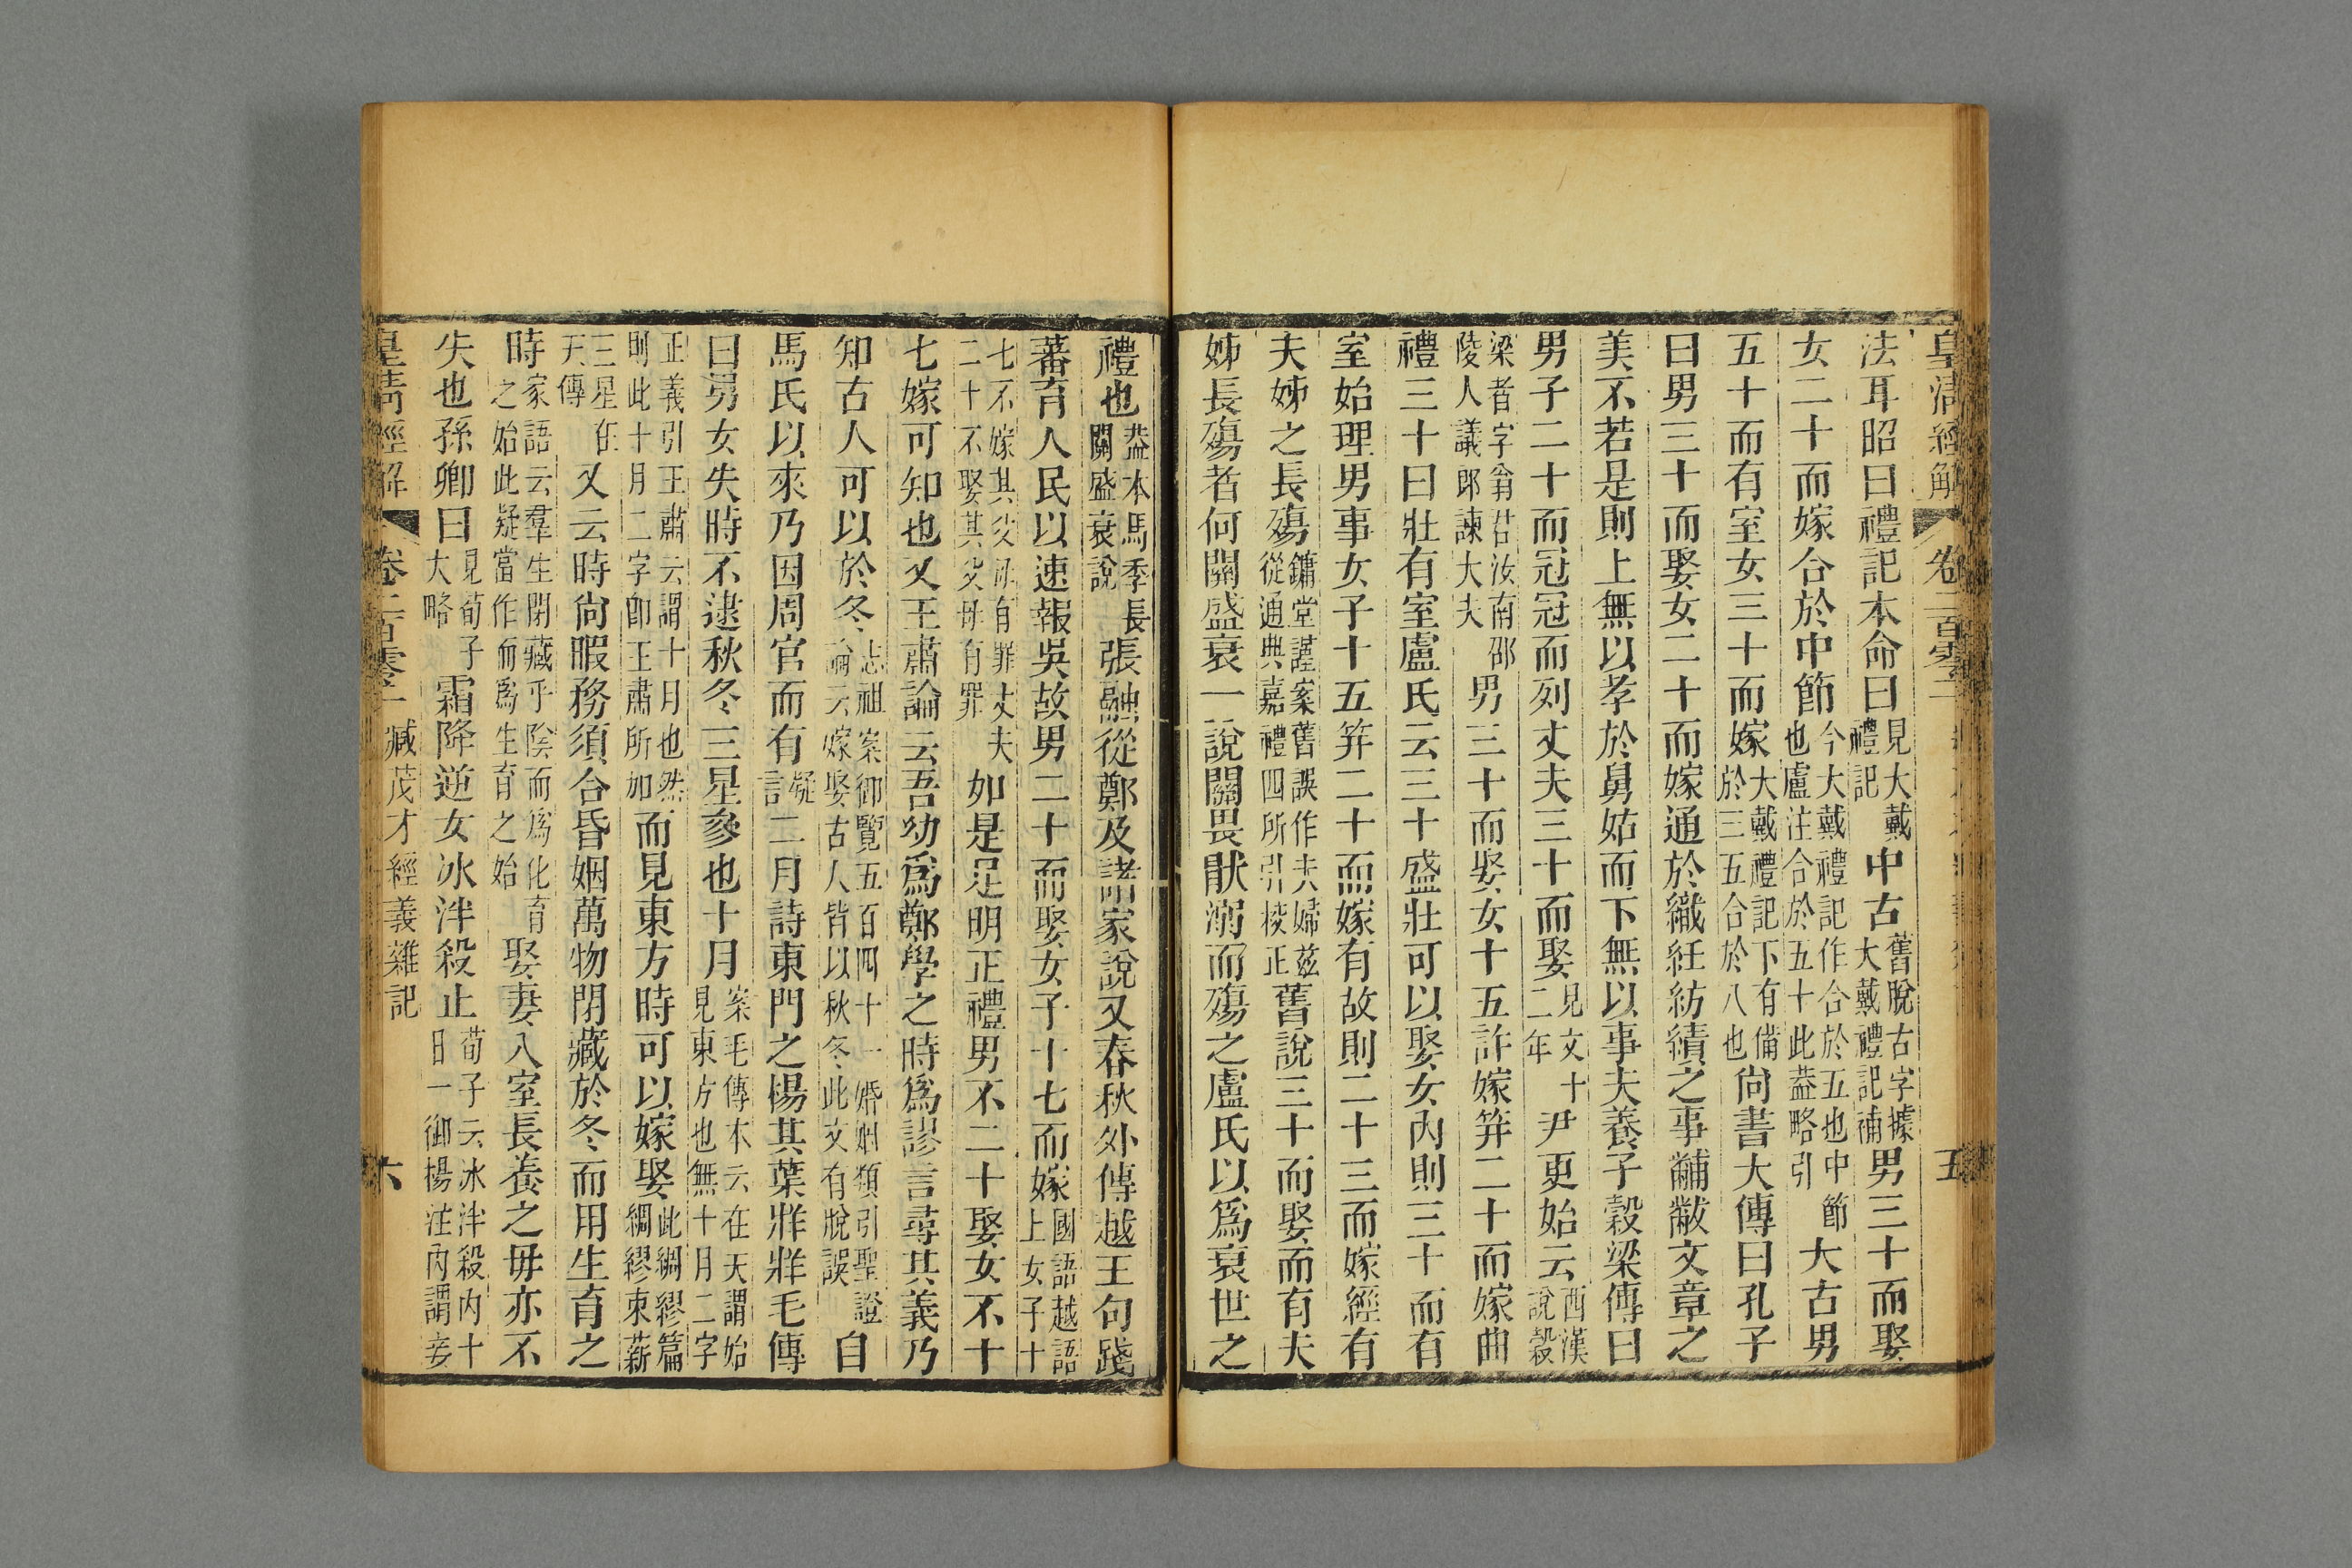 皇清經解 卷二百零二 五
法耳昭曰禮記本命曰見大戴禮記中古舊脫古字據大戴禮記補男三十而娶
女二十而嫁合於中節今大戴禮記作合於五也中節也盧注合於五十此葢略引大古男
五十而有室女三十而嫁大戴禮記下有備於三五合於八也尙書大傳曰孔子
曰男三十而娶女二十而嫁通於織紝紡績之事黼黻文章之
美不若是則上無以孝於舅姑而下無以事夫養子穀梁傳曰
男子二十而冠冠而列丈夫三十而娶見文十二年尹更始云西漢說穀
梁者字翁君汝南邵陵人議郎諫大夫男三十而娶女十五許嫁笄二十而嫁曲
禮三十曰壯有室盧氏云三十盛壯可以娶女內則三十而有
室始理男事女子十五笄二十而嫁有故則二十三而嫁經有
夫姊之長殤鏞堂謹案舊誤作夫婦茲從通典嘉禮四所引校正舊說三十而娶而有夫
姊長殤者何關盛衰一說關畏猒溺而殤之盧氏以爲衰世之
禮也葢本馬季長關盛衰說張融從鄭及諸家說又春秋外傳越王句踐
蕃育人民以速報吳故男二十而娶女子十七而嫁國語越語上女子十
七不嫁其父母有罪丈夫二十不娶其父母有罪如是足明正禮男不二十娶女不十
七嫁可知也又王肅論云吾幼爲鄭學之時爲謬言尋其義乃
知古人可以於冬志祖案御覽五百四十一婚姻類引聖證論云嫁娶古人皆以秋冬此文有脫誤自
馬氏以來乃因周官而有疑言二月詩東門之楊其葉牂牂毛傳
曰男女失時不逮秋冬三星參也十月案毛傳本云在天謂始見東方也無十月二字
正義引王肅云謂十月也然則此十月二字卽王肅所加而見東方時可以嫁娶此綢繆篇綢繆束薪
三星在天傳又云時尙暇務須合昏姻萬物閉藏於冬而用生育之
時家語云羣生閉藏乎陰而爲化育之始此疑當作而爲生育之始娶妻入室長養之母亦不
失也孫卿曰見荀子大略霜降逆女冰泮殺止荀子云冰泮殺內十日一御楊注內謂妾
皇清經解 卷二百零二 臧茂才經義雜記 六